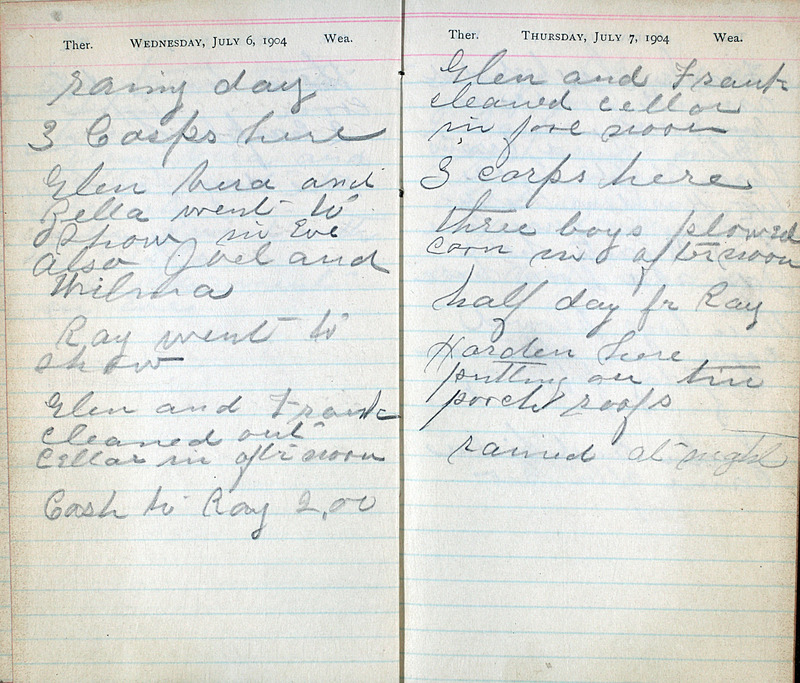 Ther. WEDNESDAY, JULY 6, 1904 Wea.
rainy day
3 Corps here
Glen and
Zella went to
Show in Eve
also Joel and
Wilma
Ray went to
show
Glen and Frank
cleaned out
cellar in afternoon
Cash to Ray 2,00
Ther. THURSDAY, JULY 7, 1904 Wea.
Glen and Frank
cleaned cellar
in fore noon
3 corps here
three boys plowed
corn in afternoon
half day fr Ray
Harden here
putting on tin
porch roofs
rained at night